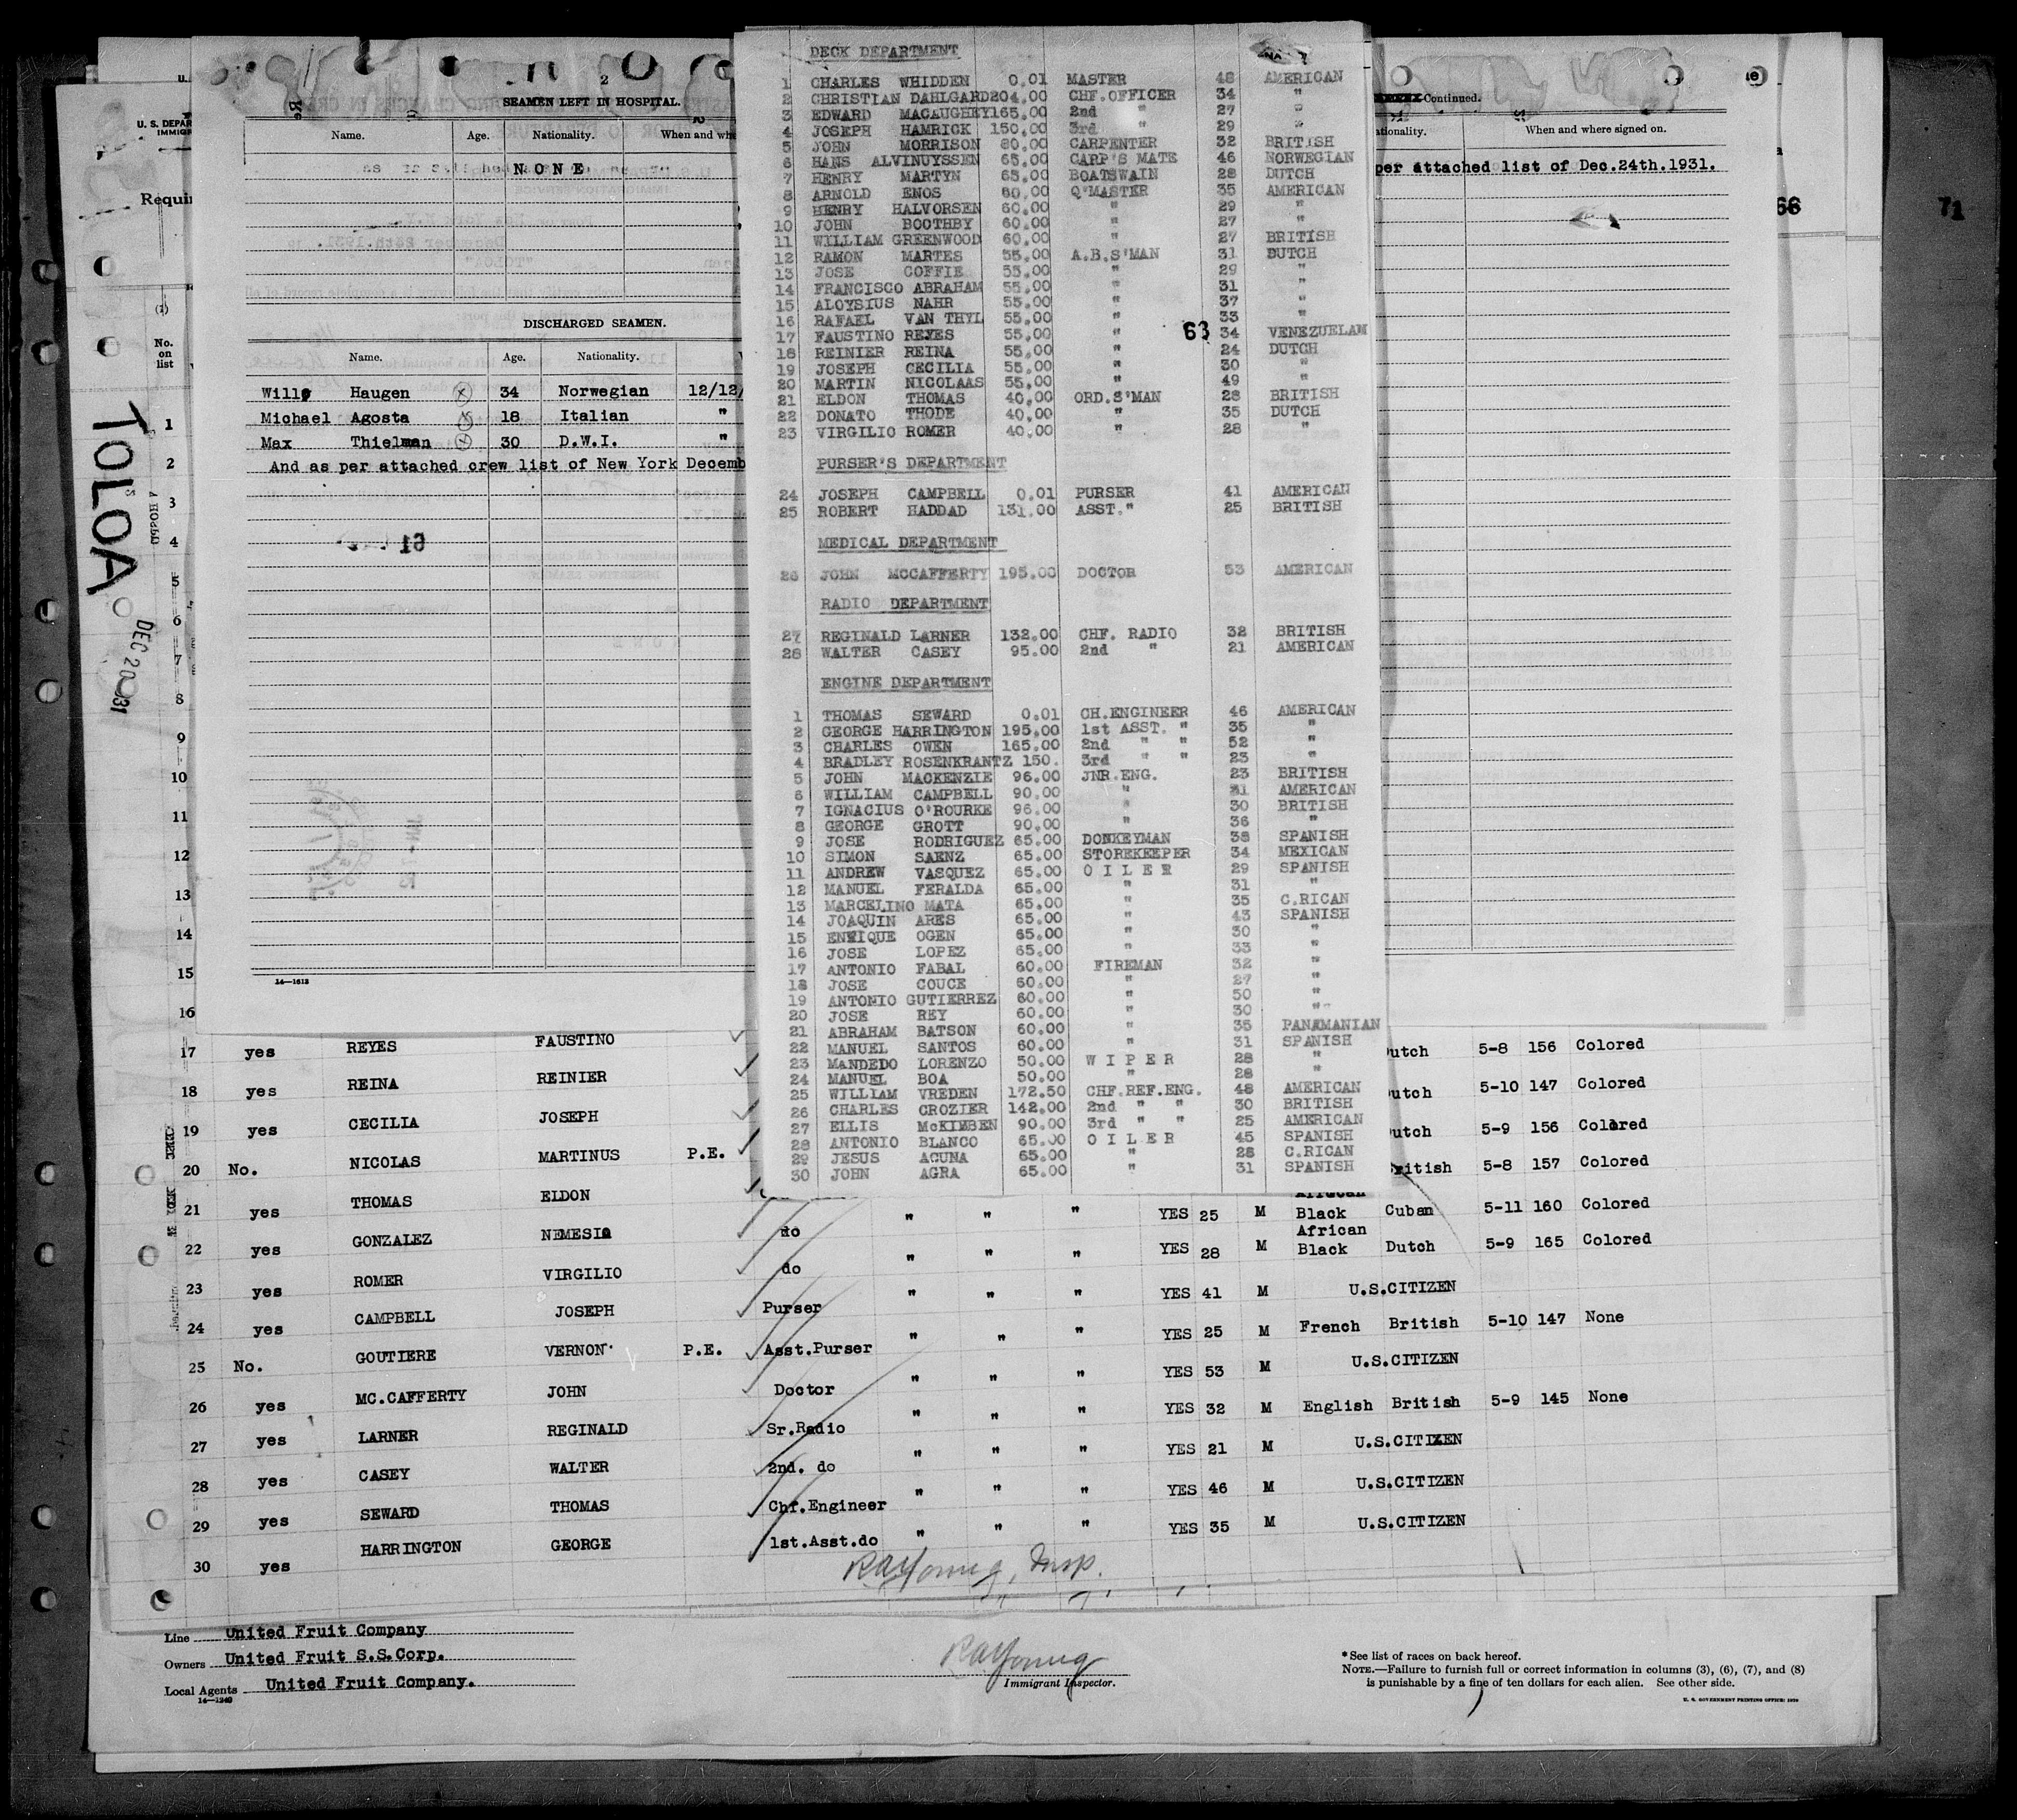 U. S. DEPAR
IMMIGR
Requir
(1)
No.
on
list
TOLOA
DEC 20 1931
2
SEAMEN LEFT IN HOSPITAL.
Name. Age. Nationality. When and whe
NONE
DISCHARGED SEAMEN.
Name. Age. Nationality.
Haugen 34 Norwegian 12/12/
Michael Agosta 18 Italian "
Max Thielman 30 D.W.I. "
And as per attached crew list of New York Decemb
61
14—1613
DECK DEPARTMENT
1 CHARLES WHIDDEN 0.01 MASTER 48 AMERICAN
2 CHRISTIAN DAHLGARD 204.00 CHF.OFFICER 34 "
3 EDWARD MACAUGHEY 165.00 2nd " 27 "
4 JOSEPH HAMRICK 150.00 3rd " 29 "
5 JOHN MORRISON 80.00 CARPENTER 32 BRITISH
6 HANS ALVINUYSSEN 65.00 CARP'S MATE 46 NORWEGIAN
7 HENRY MARTYN 65.00 BOATSWAIN 28 DUTCH
8 ARNOLD ENOS 60.00 Q'MASTER 35 AMERICAN
9 HENRY HALVORSEN 60.00 " 29 "
10 JOHN BOOTHBY 60.00 " 27 "
11 WILLIAM GREENWOOD 60.00 " 27 BRITISH
12 RAMON MARTES 55.00 A.B.S'MAN 31 DUTCH
13 JOSE COFFIE 55.00 " 29 "
14 FRANCISCO ABRAHAM 55.00 " 31 "
15 ALOYSIUS NAHR 55.00 " 37 "
16 RAFAEL VAN THYL 55.00 " 33 "
17 FAUSTINO REYES 55.00 " 63 34 VENEZUELAN
18 REINIER REINA 55.00 " 24 DUTCH
19 JOSEPH CECILIA 55.00 " 30 "
20 MARTIN NICOLAAS 55.00 " 49 "
21 ELDON THOMAS 40.00 ORD.S'MAN 28 BRITISH
22 DONATO THODE 40.00 " 35 DUTCH
23 VIRGILIO ROMER 40.00 " 28 "
PURSER'S DEPARTMENT
24 JOSEPH CAMPBELL 0.01 PURSER 41 AMERICAN
25 ROBERT HADDAD 131.00 ASST." 25 BRITISH
MEDICAL DEPARTMENT
26 JOHN MCCAFFERTY 195.00 DOCTOR 53 AMERICAN
RADIO DEPARTMENT
27 REGINALD LARNER 132.00 CHF. RADIO 32 BRITISH
28 WALTER CASEY 95.00 2nd " 21 AMERICAN
ENGINE DEPARTMENT
1 THOMAS SEWARD 0.01 CH.ENGINEER 46 AMERICAN
2 GEORGE HARRINGTON 195.00 1st ASST. " 35 "
3 CHARLES OWEN 165.00 2nd " " 52 "
4 BRADLEY ROSENKRANTZ 150. 3rd " " 23 "
5 JOHN MACKENZIE 96.00 JNR.ENG. 23 BRITISH
6 WILLIAM CAMPBELL 90.00 " 31 AMERICAN
7 IGNACIUS O'ROURKE 96.00 " 30 BRITISH
8 GEORGE GROTT 90.00 " 36 "
9 JOSE RODRIGUEZ 65.00 DONKEYMAN 38 SPANISH
10 SIMON SAENZ 65.00 STOREKEEPER 34 MEXICAN
11 ANDREW VASQUEZ 65.00 OILER 29 SPANISH
12 MANUEL FERALDA 65.00 " 31 "
13 MARCELINO MATA 65.00 " 35 C.RICAN
14 JOAQUIN ARES 65.00 " 43 SPANISH
15 ENRIQUE OGEN 65.00 " 30 "
16 JOSE LOPEZ 65.00 " 33 "
17 ANTONIO FABAL 60.00 FIREMAN 32 "
18 JOSE COUCE 60.00 " 27 "
19 ANTONIO GUTIERREZ 60.00 " 50 "
20 JOSE REY 60.00 " 30 "
21 ABRAHAM BATSON 60.00 " 35 PANAMANIAN
22 MANUEL SANTOS 60.00 " 31 SPANISH
23 MANDEDO LORENZO 50.00 WIPER 28 "
24 MANUEL BOA 50.00 " 28 "
25 WILLIAM VREDEN 172.50 CHF.REF.ENG. 48 AMERICAN
26 CHARLES CROZIER 142.00 2nd " " 30 BRITISH
27 ELLIS McKIMBEN 90.00 3rd " " 25 AMERICAN
28 ANTONIO BLANCO 65.00 OILER 45 SPANISH
29 JESUS ACUNA 65.00 " 28 C.RICAN
30 JOHN AGRA 65.00 " 31 SPANISH
Continued.
ationality. When and where signed on.
per attached list of Dec.24th.1931.
66
71
1
2
3
4
5
6
7
8
9
10
11
12
13
14
15
16
17 yes REYES FAUSTINO utch 5-8 156 Colored
18 yes REINA REINIER utch 5-10 147 Colored
19 yes CECILIA JOSEPH utch 5-9 156 Colored
20 No. NICOLAS MARTINUS P.E. ritish 5-8 157 Colored
21 yes THOMAS ELDON " " " YES 25 M African Black Cuban 5-11 160 Colored
22 yes GONZALEZ NEMESIO do " " " YES 28 M African Black Dutch 5-9 165 Colored
23 yes ROMER VIRGILIO do " " " YES 41 M U.S.CITIZEN
24 yes CAMPBELL JOSEPH Purser " " " YES 25 M French British 5-10 147 None
25 No. GOUTIERE VERNON P.E. Asst.Purser " " " YES 53 M U.S.CITIZEN
26 yes MC.CAFFERTY JOHN Doctor " " " YES 32 M English British 5-9 145 None
27 yes LARNER REGINALD Sr.Radio " " " YES 21 M U.S.CITIZEN
28 yes CASEY WALTER 2nd. do " " " YES 46 M U.S.CITIZEN
29 yes SEWARD THOMAS Chf.Engineer " " " YES 35 M U.S.CITIZEN
30 yes HARRINGTON GEORGE 1st.Asst.do
RAYoung, Insp.
Line United Fruit Company
Owners United Fruit S.S.Corp.
Local Agents United Fruit Company.
14—1240
RAYoung
Immigrant Inspector.
* See list of races on back hereof.
NOTE.—Failure to furnish full or correct information in columns (3), (6), (7), and (8)
is punishable by a fine of ten dollars for each alien. See other side.
U. S. GOVERNMENT PRINTING OFFICE: 1930